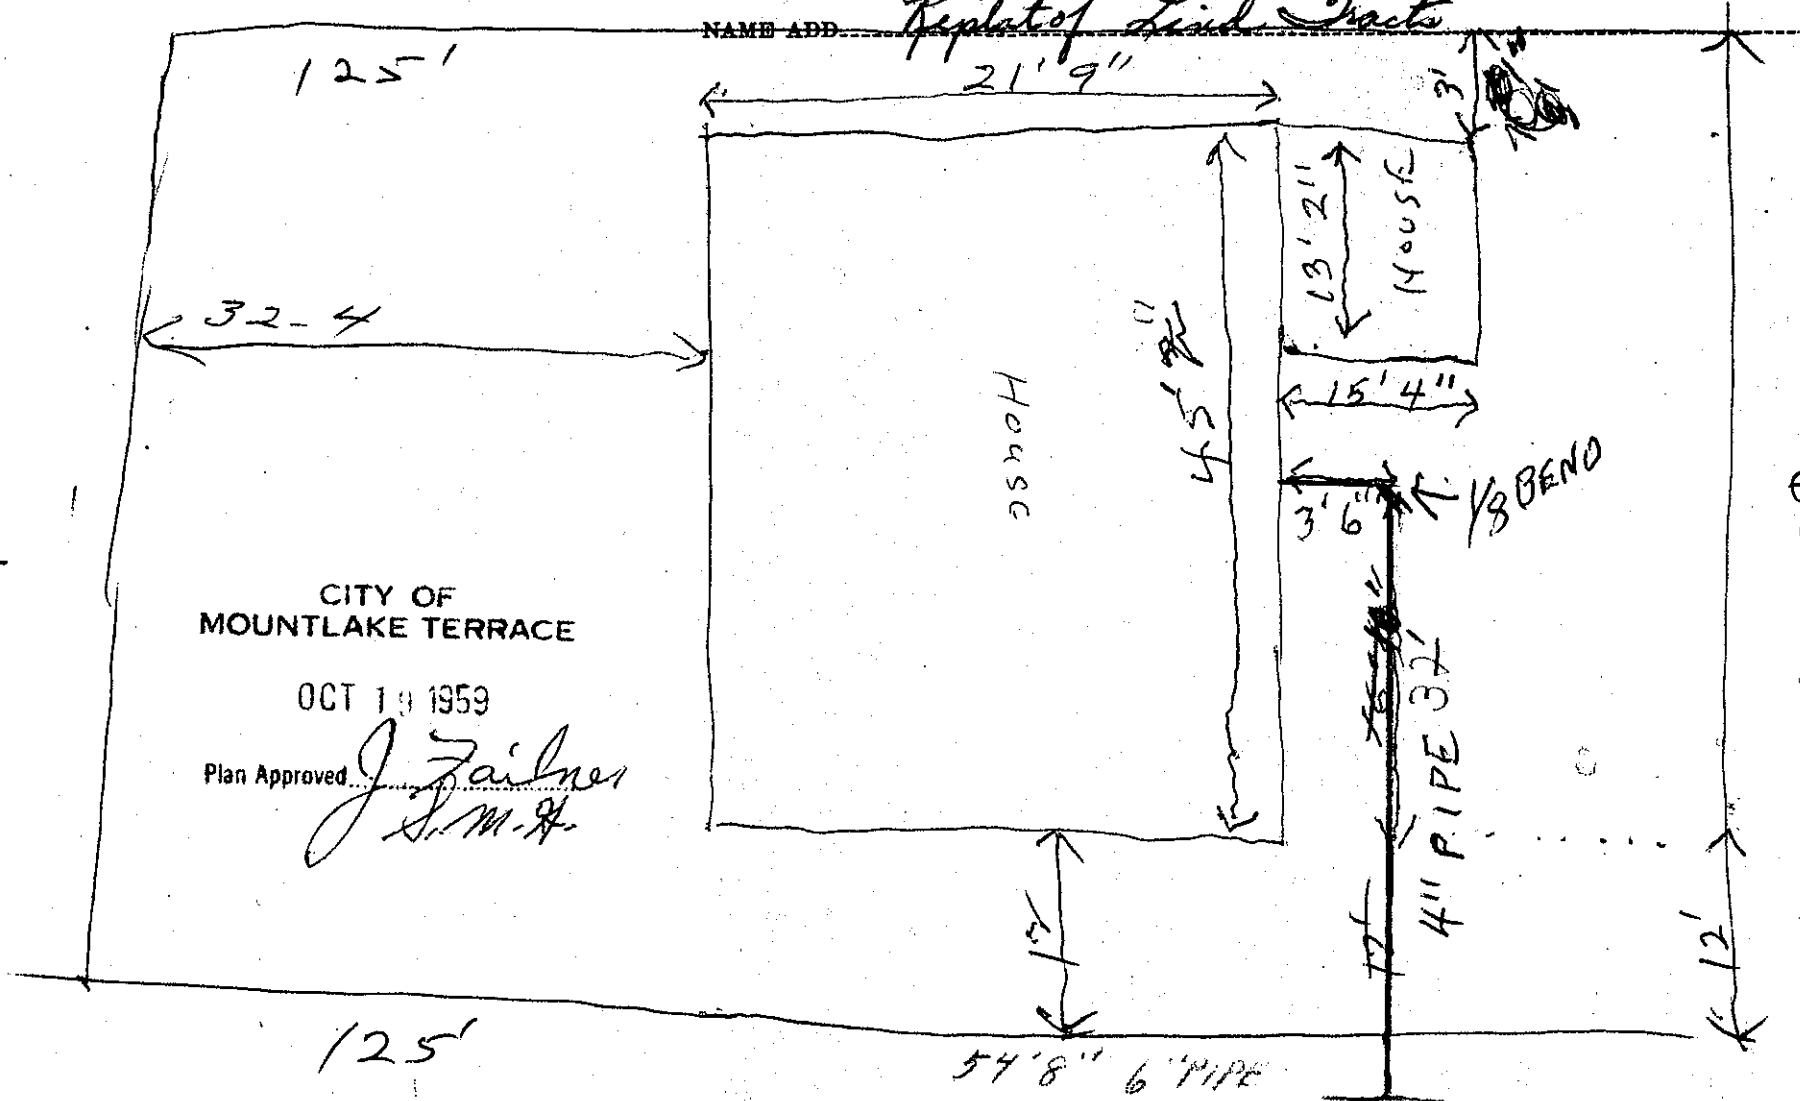 NAME ADD. Replat of Lind Tracts
125'
21' 9"
3'
13' 2"
House
32-4
45'
House
15' 4"
3' 6"
1/8 BEND
CITY OF
MOUNTLAKE TERRACE
OCT 19 1959
Plan Approved J.
S.M.H.
4" PIPE 32'
12'
12'
12'
125'
54' 8" 6" PIPE